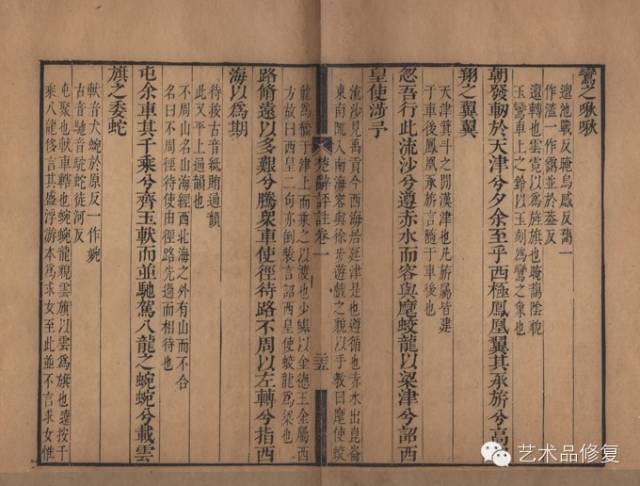 鸞之啾啾
邅池戰反晻烏感反藹一
作濭一作靄並於蓋反
邅轉也雲霓以爲旌旗也晻藹陰貌
玉鸞車上之鈴以玉刻爲鸞之象也
朝發軔於天津兮夕余至乎西極鳳凰翼其承旂兮高
翔之翼翼
天津箕斗之間漢津也凡旂屬皆建
于車後鳳凰承旂言隨于車後也
忽吾行此流沙兮遵赤水而容與麾蛟龍以梁津兮詔西
皇使涉予
流沙見禹貢今西海居延津是也遵循也赤水出崑崙
東南陬入南海容與徐步遊戲之貌以手教曰麾使蛟
楚辭評註卷一
龍爲橋于津上而乘之以渡也少皞以金德王金屬西
方故曰西皇二句亦倒裝言詔西皇使蛟龍爲梁也
路脩遠以多艱兮騰衆車使徑待路不周以左轉兮指西
海以爲期
待按古音紙賄通韻
此又平上通韻也
不周山名山海經西北海之外有山而不合
名曰不周徑待使由徑路先過而相待也
屯余車其千乘兮齊玉軑而並馳駕八龍之蜿蜿兮載雲
旗之委蛇
軑音犬蜿於原反一作婉
古音馳音駝蛇徒河反
屯聚也軑車轄也蜿蜿龍貌雲旗以雲爲旗也遠按千
乘八龍俊言其盛浮游本爲求女至此並不言求女惟
艺术品修复